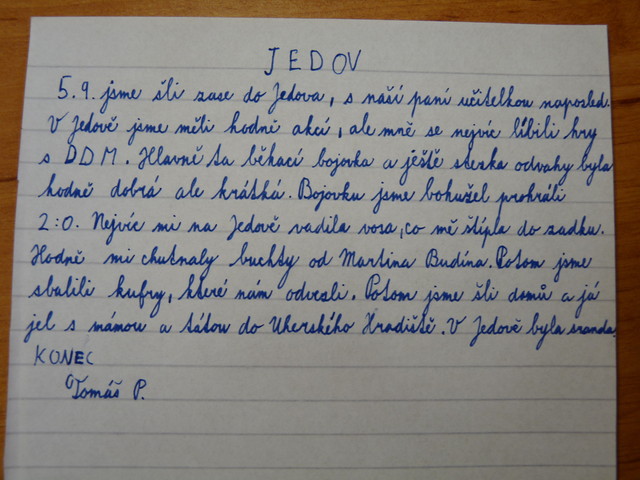 JEDOV
5.9. jsme šli zase do Jedova, s naší paní učitelkou naposled.
V Jedově jsme měli hodně akcí, ale mně se nejvíc líbili hry
s DDM. Hlavně ta běhací bojovka a ještě stezka odvahy byla
hodně dobrá ale krátká. Bojovku jsme bohužel prohráli
2:0. Nejvíc mi na Jedově vadila vosa, co mě štípla do zadku.
Hodně mi chutnaly buchty od Martina Budína. Potom jsme
sbalili kufry, které nám odvezli. Potom jsme šli domů a já
jel s mámou a tátou do Uherského Hradiště. V Jedově byla sranda.
KONEC
Tomáš P.